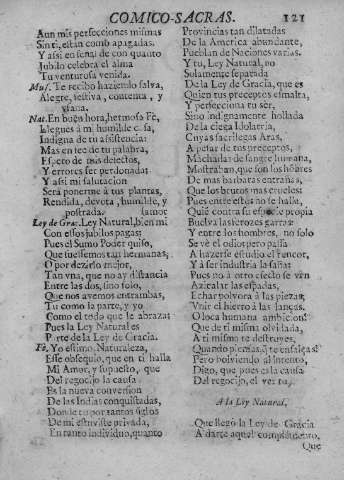 COMICO-SACRAS. 121
Aun mis perfecciones mismas
Sin ti, estan como apagadas.
Y assi en señal de con quanto
Jubilo celebra el alma
Tu venturosa venida.
Mus. Te recibo haziendo salva,
Alegre, festiva, contenta, y
vfana.
Nat. En buen hora, hermosa Fé,
Llegues á mi humilde casa,
Indigna de tu assistencia:
Mas en fee de tu palabra,
Espero de mis defectos,
Y errores ser perdonada:
Y assi mi salutacion
Será ponerme á tus plantas,
Rendida, devota, humilde, y
postrada.
Ley de Grac. Ley Natural, bien mi
Con essos jubilos pagas;
Pues el Sumo Poder quiso,
Que fuessemos tan hermanas;
O por dezirlo mejor,
Tan vna, que no ay distancia
Entre las dos, sino solo,
Que nos avemos entrambas,
Tu como la parte, y yo
Como el todo que le abrazas
Pues la Ley Natural es
Parte de la Ley de Gracia.
Fé. Yo estimo, Naturaleza,
Este obsequio, que en ti halla
Mi Amor, y supuesto, que
Del regocijo la causa
Es la nueva conversion
De las Indias conquistadas,
Donde tu por tantos siglos
De mi estuviste privada,
En tanto individuo, quanto
Provincias tan dilatadas
De la America abundante,
Pueblan de Naciones varias.
Y tu, Ley Natural, no
Solamente separada
De la Ley de Gracia, que es
Quien tus preceptos esmalta,
Y perfecciona tu sér,
Sino indignamente hollada
De la ciega Idolatria,
Cuyas sacrilegas Aras,
A pesar de tus preceptos,
Machadas de sangre humana,
Mostraban, que son los hōbres
De mas barbaras entrañas,
Que los brutos mas crueles;
Pues entre estos no se halla,
Quiē contra su especie propia
Buelva las feroces garras:
Y entre los hombres, no solo
Se vè el odio; pero passa
A hazerse estudio el rencor,
Y á ser industria la saña;
Pues no á otro efecto se vèn
Azicalar las espadas,
Echar polvora á las piezas,
Vnir el hierro á las lanças.
O loca humana ambicion!
Que de ti misma olvidada,
A ti misma te destruyes,
Quando piensas q̃ te ensalças!
Pero bolviendo al intento,
Digo, que pues es la causa
Del regocijo, el ver tu,
A la Ley Natural.
Que llegó la Ley de Gracia
A darte aquel complemento,
Que